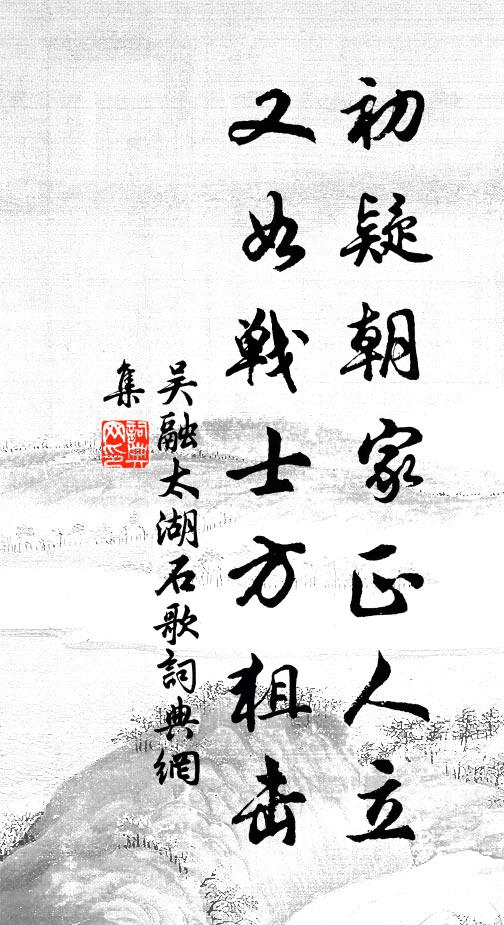 初疑朝家正人立
又如戰士方狙击
吴融太湖石歌詞典網
集